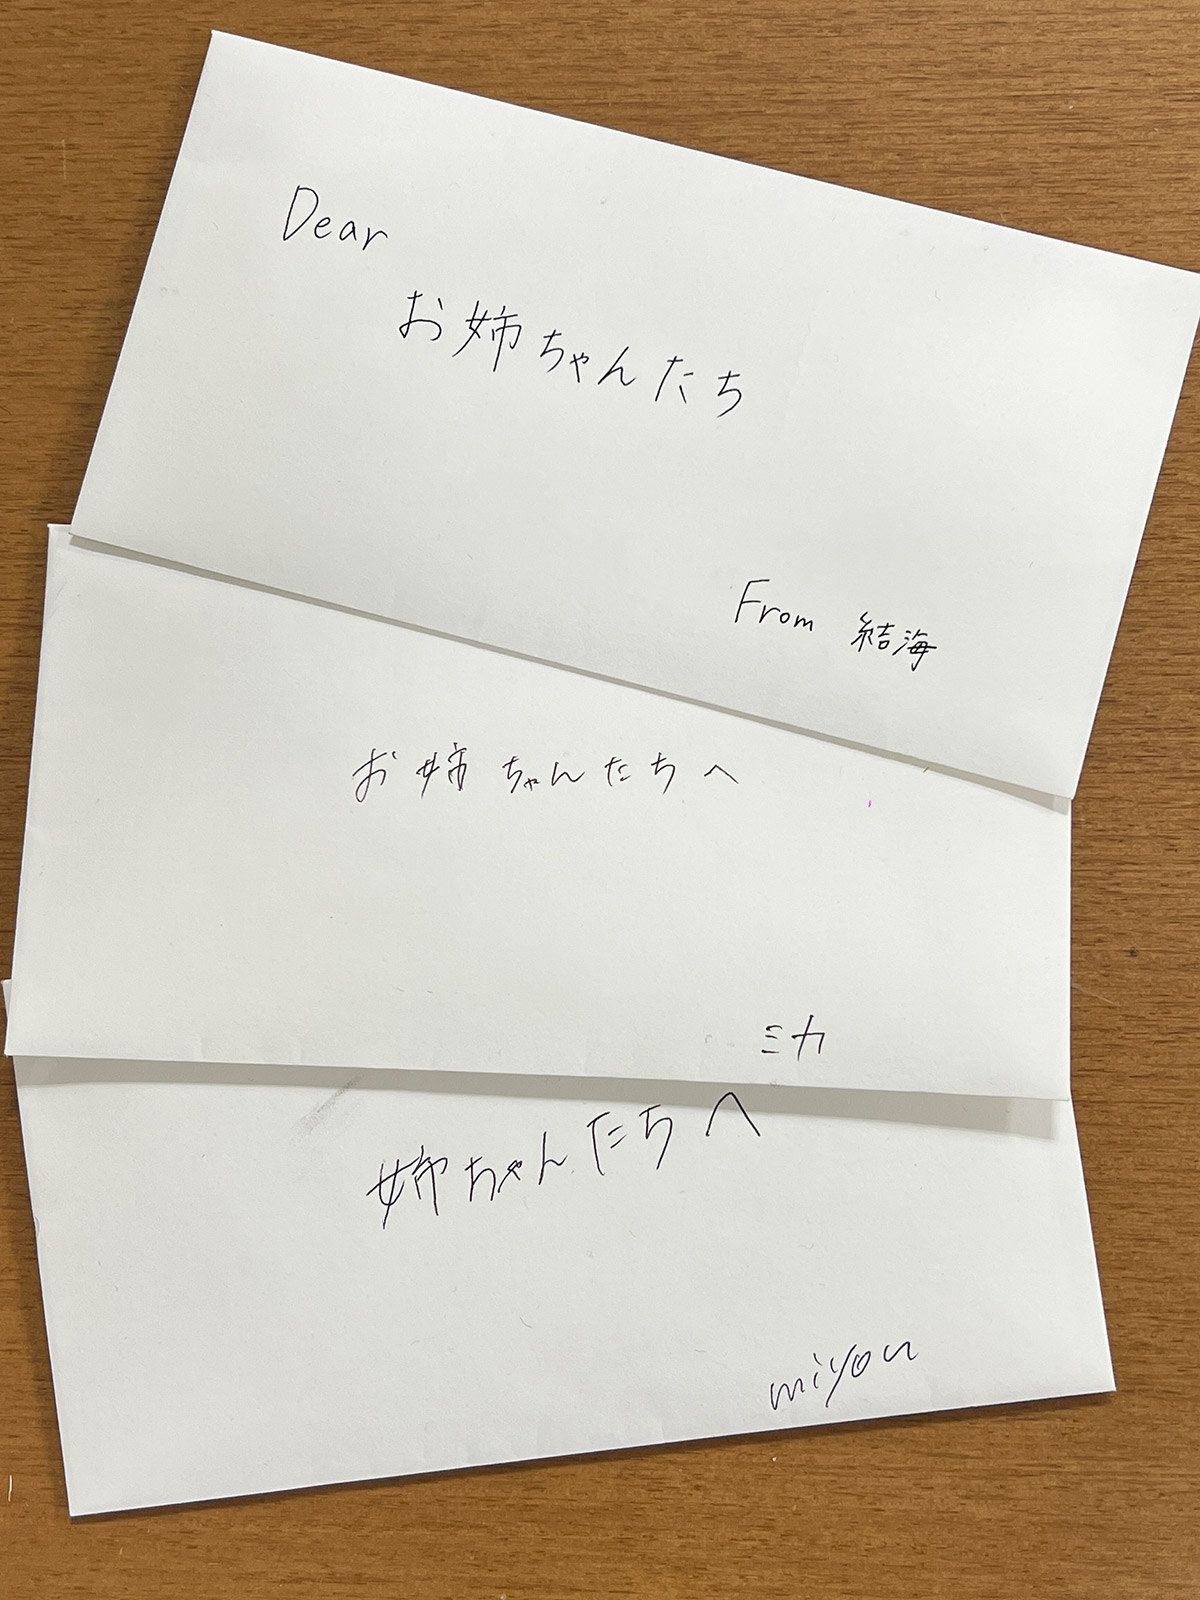 Dear
お姉ちゃんたち
From 結海
お姉ちゃんたちへ
ミカ
姉ちゃんたちへ
miyou